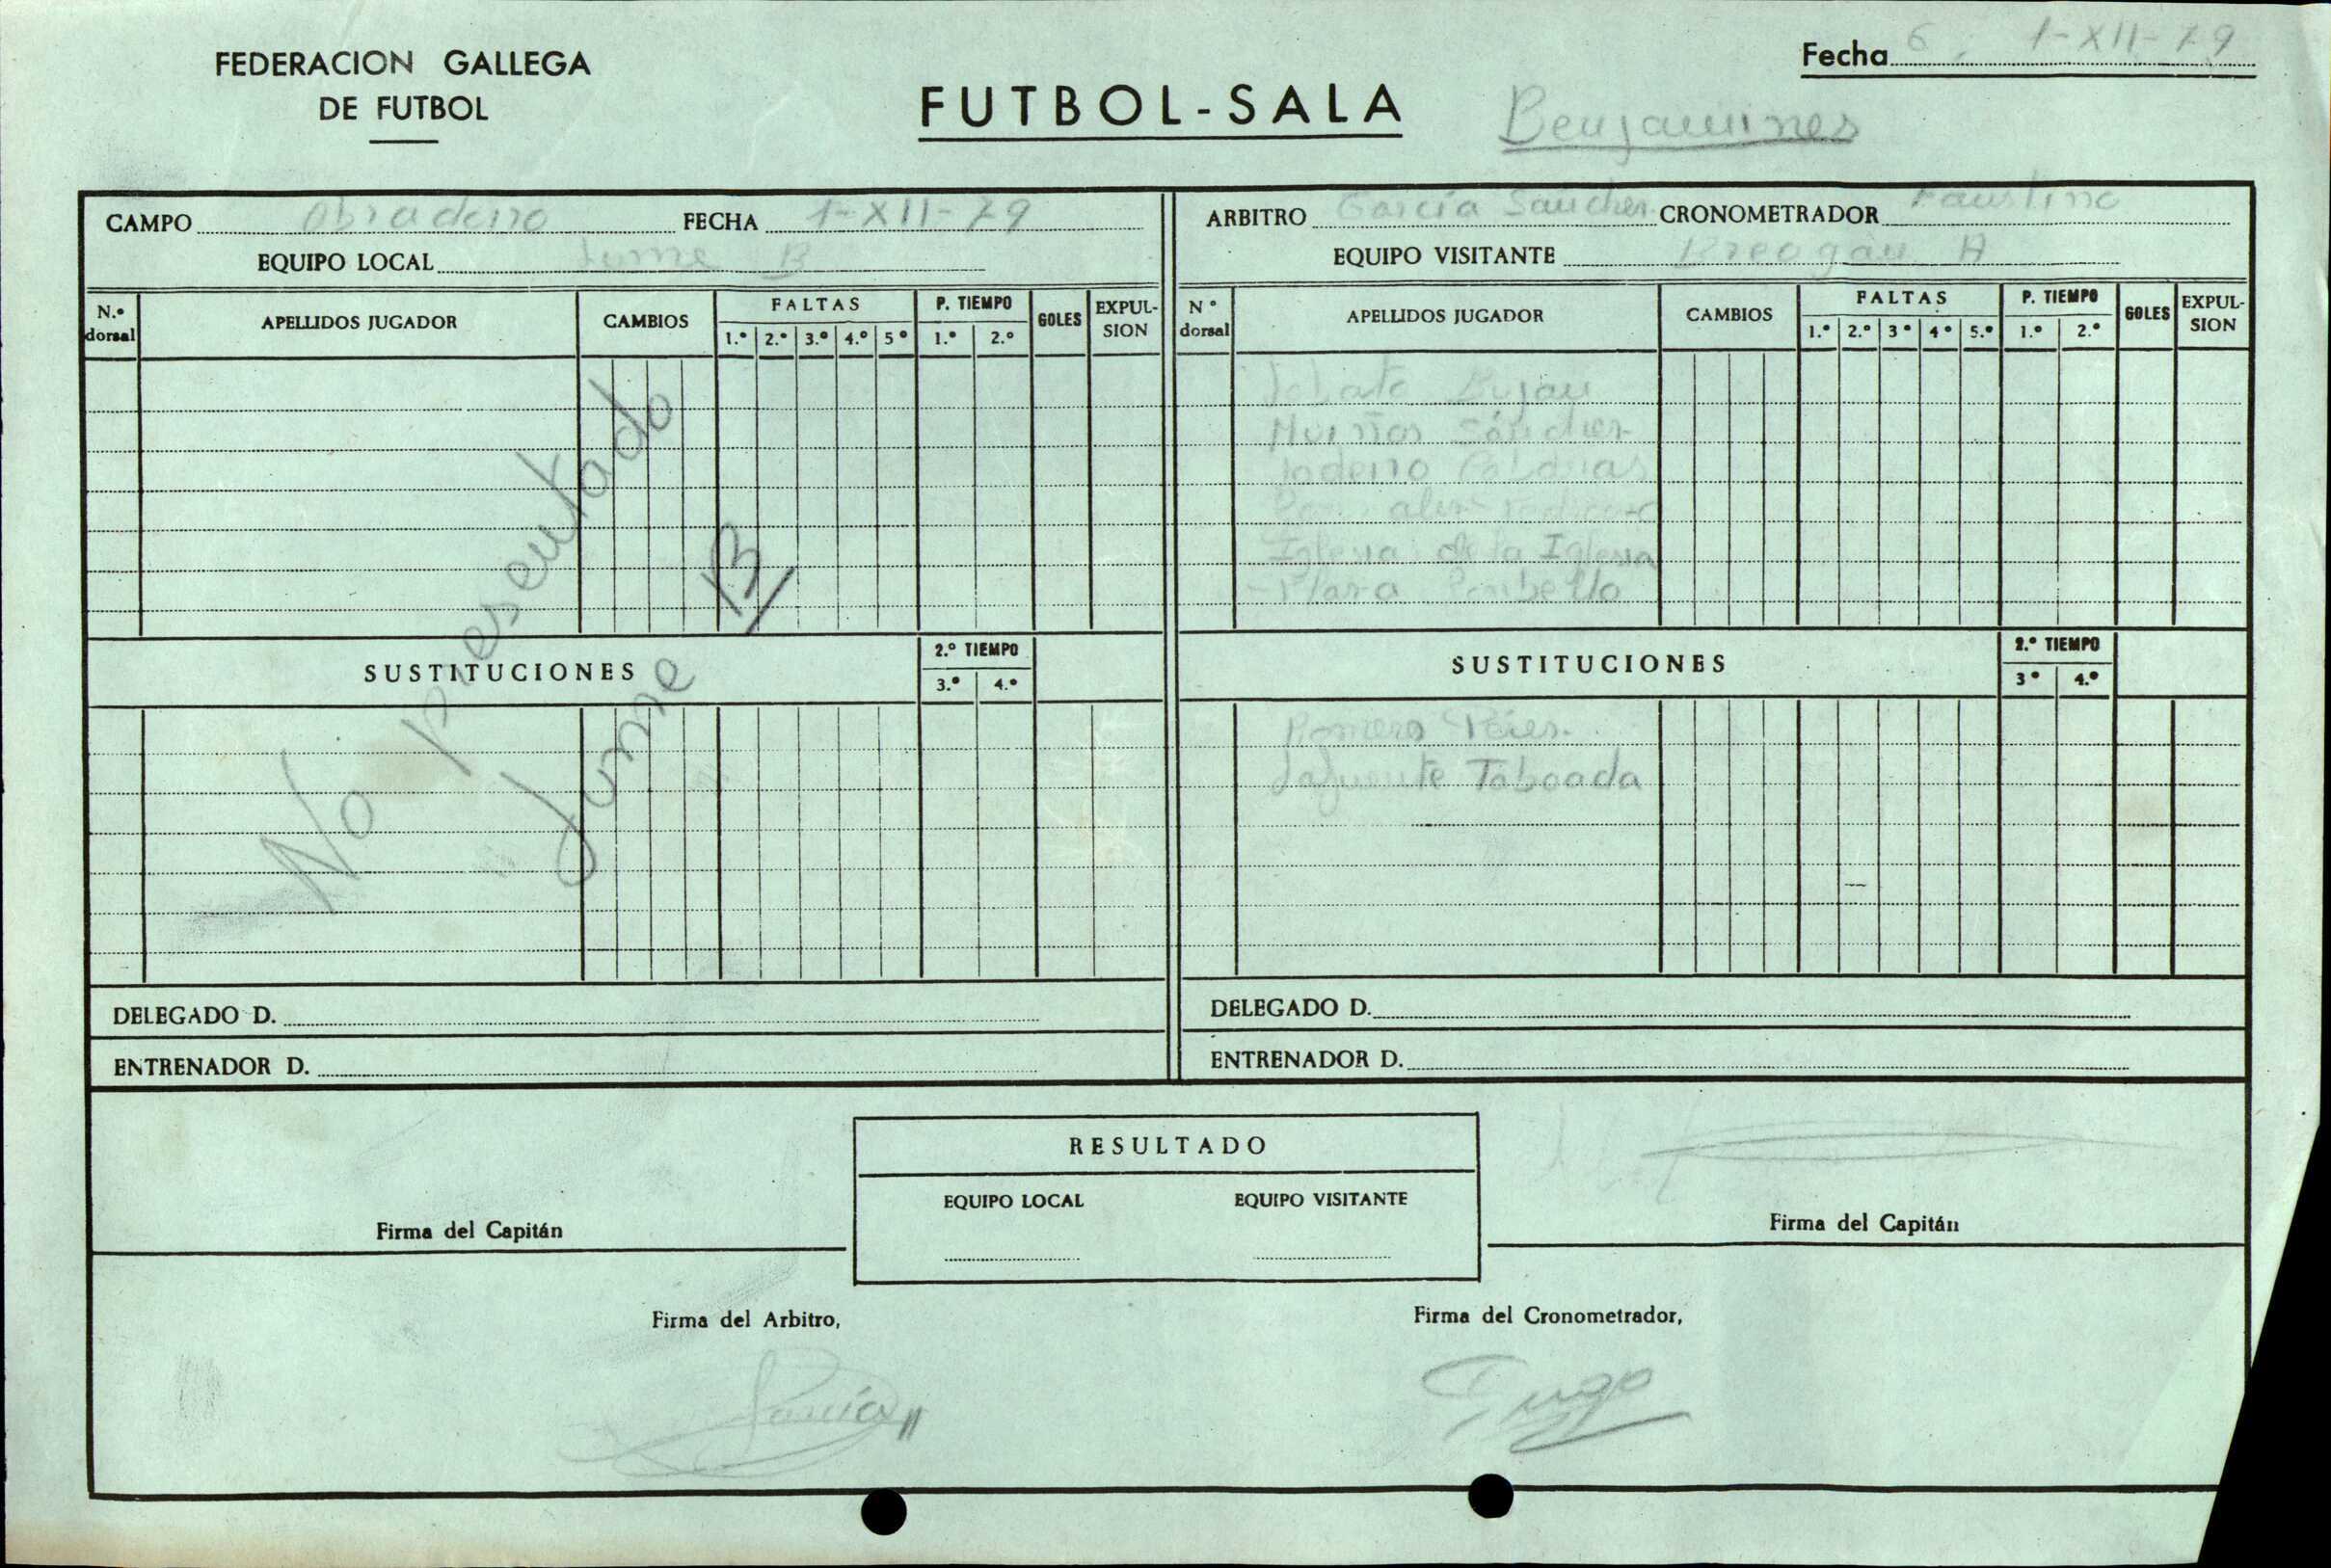 FEDERACION GALLEGA
DE FUTBOL
FUTBOL-SALA
Fecha 6. 1-XII-79
Benjamines
CAMPO Obradoiro FECHA 1-XII-79
EQUIPO LOCAL Lume B
ARBITRO García Sánchez CRONOMETRADOR Faustino
EQUIPO VISITANTE Breogán A
N.º dorsal APELLIDOS JUGADOR CAMBIOS FALTAS 1.ª 2.ª 3.ª 4.ª 5ª P. TIEMPO 1.º 2.º GOLES EXPUL-SION
N º dorsal APELLIDOS JUGADOR CAMBIOS FALTAS 1.ª 2.ª 3ª 4ª 5.ª P. TIEMPO 1.º 2.º GOLES EXPUL-SION
No presentado
Lume B
Muiños Sánchez
Iglesia de la Iglesia
SUSTITUCIONES 2.º TIEMPO 3.º 4.º
SUSTITUCIONES 2.º TIEMPO 3º 4.º
Romero
Lafuente Taboada
DELEGADO D.
ENTRENADOR D.
DELEGADO D.
ENTRENADOR D.
Firma del Capitán
RESULTADO
EQUIPO LOCAL EQUIPO VISITANTE
Firma del Capitán
Firma del Arbitro,
García
Firma del Cronometrador,